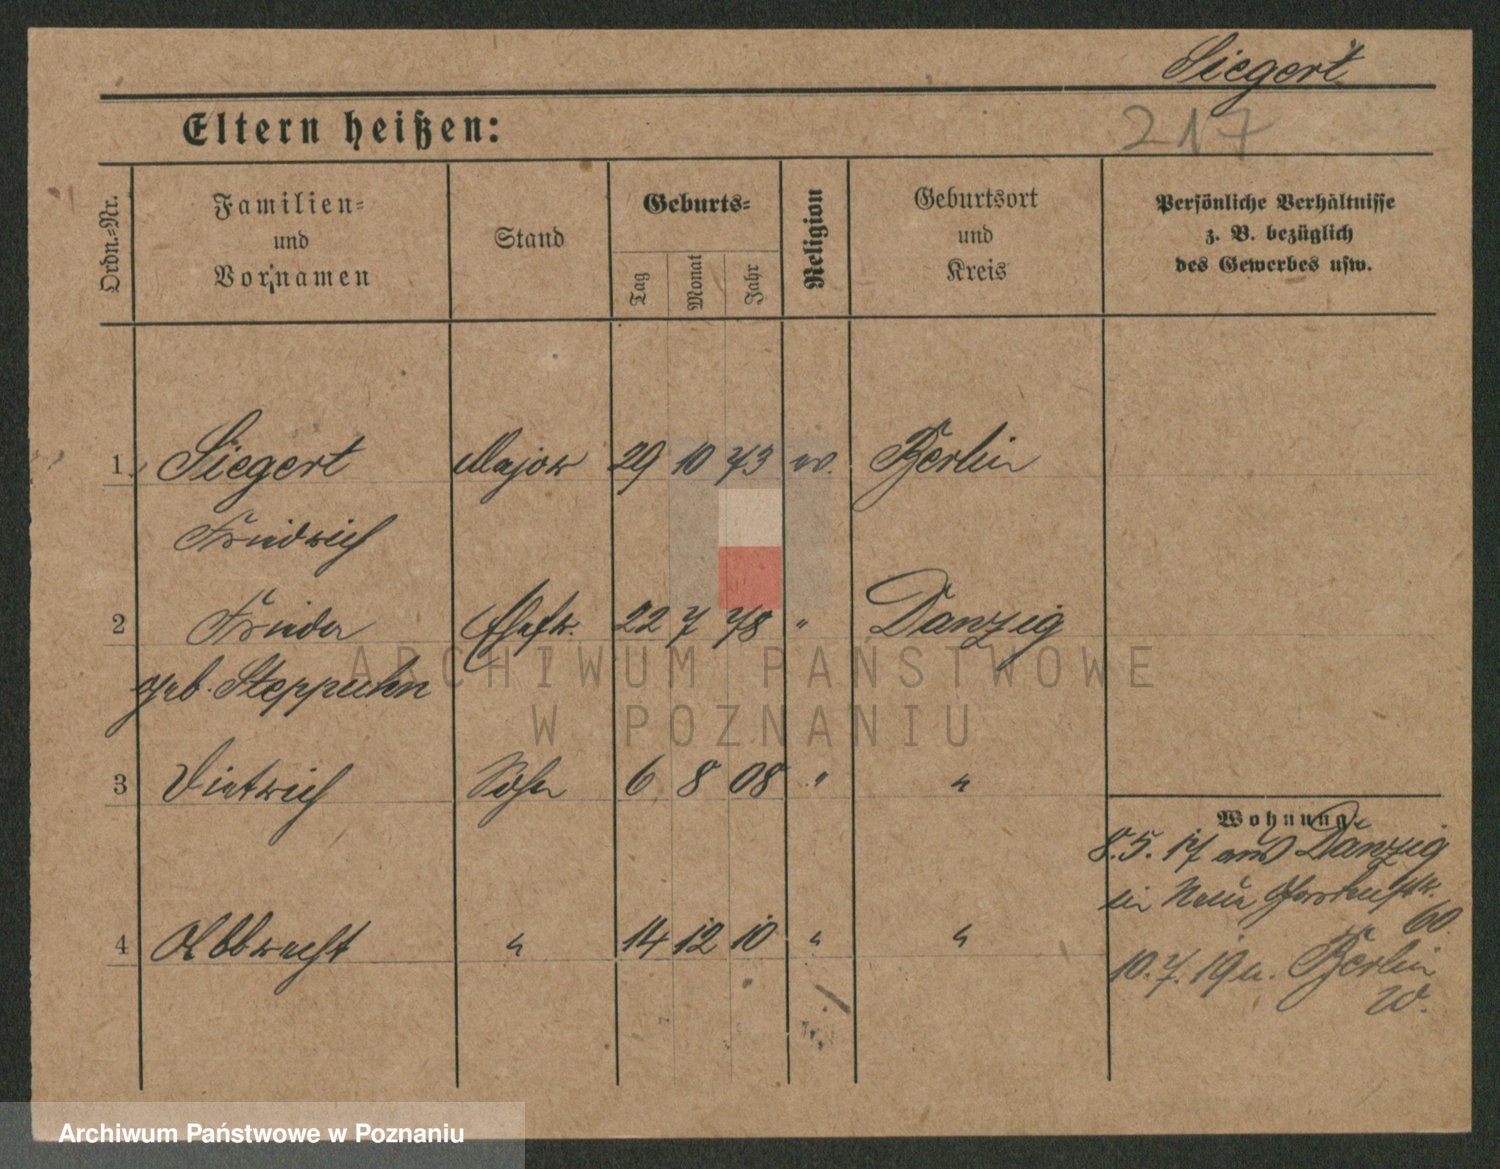 Siegert
Eltern heißen:
217
Ordn.-Nr.
Familien-
und
Vornamen
Stand
Geburts-
Tag
Monat
Jahr
Religion
Geburtsort
und
Kreis
Persönliche Verhältnisse
z. B. bezüglich
des Gewerbes usw.
1. Siegert Major 29 10 73 ev. Berlin
Friedrich
2 Frieda Ehefr. 22 7 78 " Danzig
geb. Steppuhn
3 Dietrich Sohn 6 8 08 " "
Wohnung
8. 5. 17 aus Danzig
in Neue Gartenstr.
60.
4 Albbrecht " 14 12 10 " "
10. 7. 19 n. Berlin
W.
ARCHIWUM PAŃSTWOWE
W POZNANIU
Archiwum Państwowe w Poznaniu